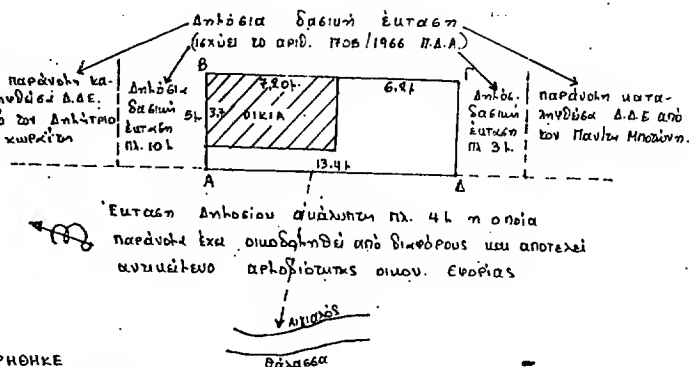 Δημόσια δασική έκταση
(ισχύει το αριθ. 1705/1966 Π.Δ.Α.)
παράνομη κα-
Δ.Δ.Ε.
τον Δημήτριο
Δημόσια
δασική
έκταση
πλ. 10μ
Β
7,20μ.
6,2μ.
Γ
5μ
3,7
ΟΙΚΙΑ
13.4μ
Α
Δ
Δημόσ.
δασική
έκταση
πλ 3μ.
παράνομη κατα-
ληφθείσα Δ.Δ.Ε από
τον Παν/τη
Έκταση Δημοσίου ακάλυπτη πλ. 4μ η οποία
παράνομα έχει οικοδομηθεί από διαφόρους και αποτελεί
αντικείμενο αρμοδιότητας οικον. Εφορίας
Αιγιαλός
Θάλασσα
ΡΗΘΗΚΕ